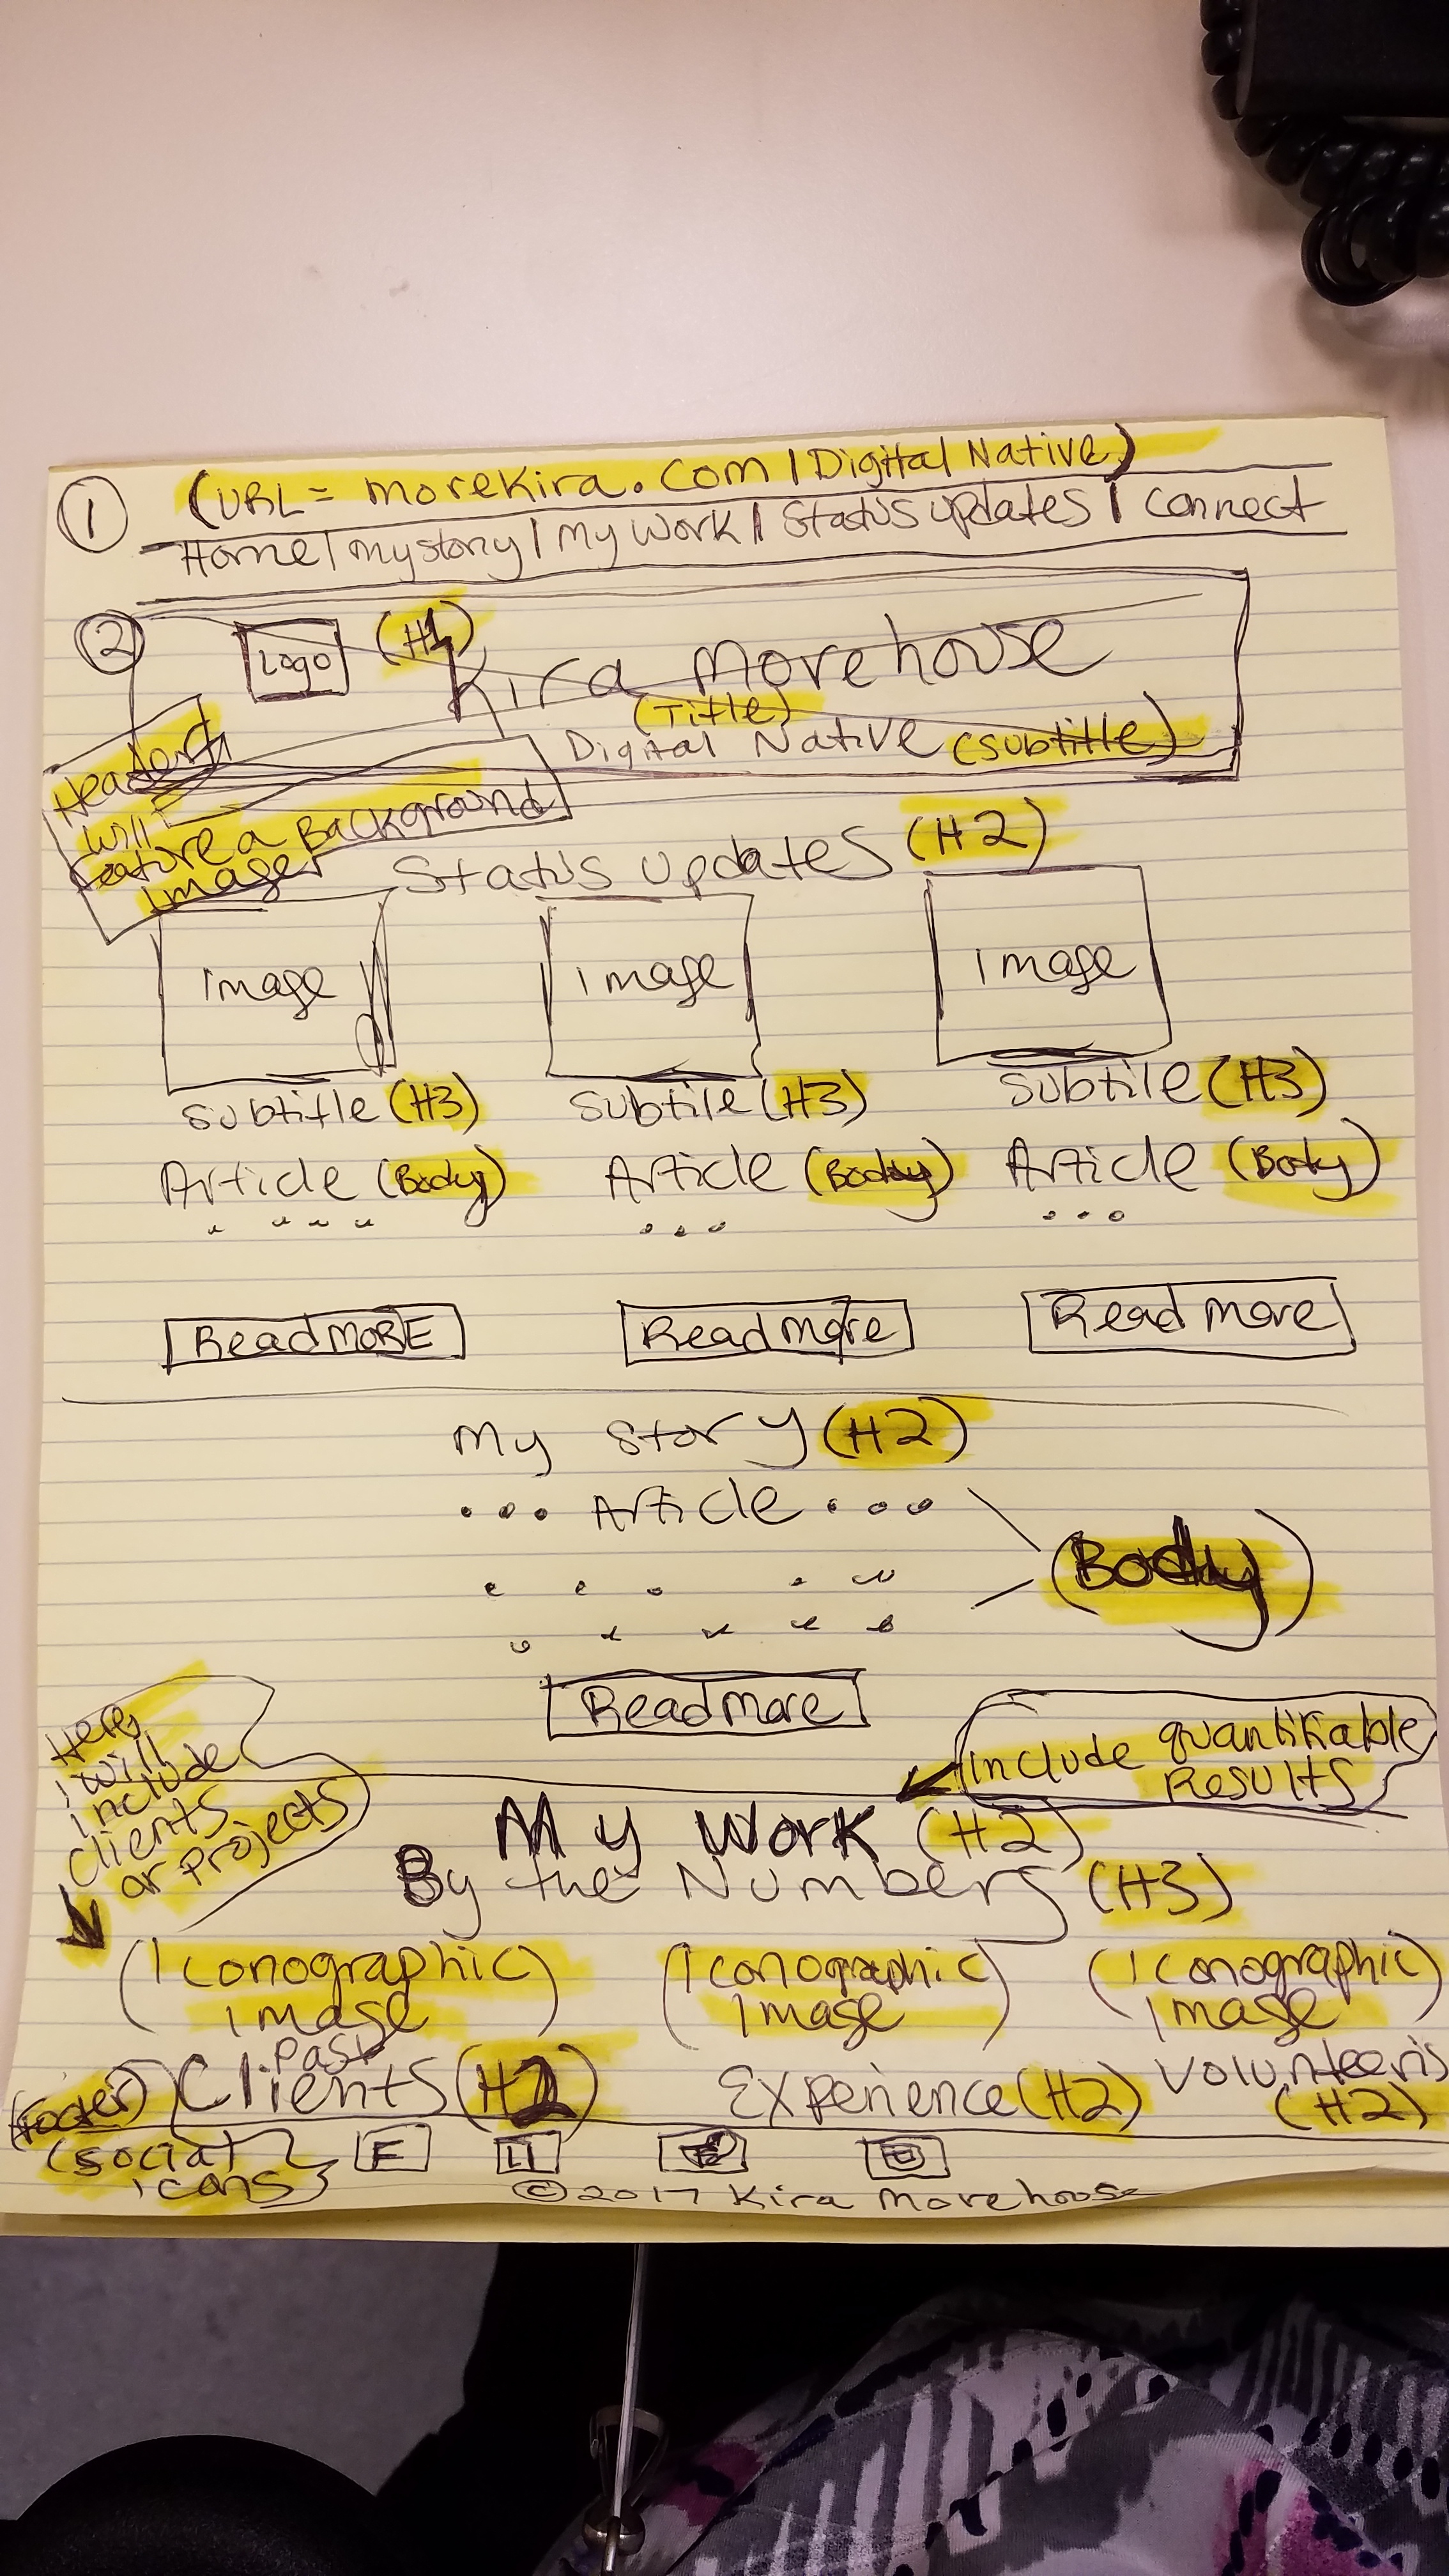 ① (URL = moreKira.com | Digital Native)
Home | my story | My Work | Status updates | connect
②
Logo
(H1)
Kira Morehouse
(Title)
Digital Native (subtitle)
Header
will
feature a Background
image
Status updates (H2)
image image image
Subtitle (H3) Subtile (H3) Subtile (H3)
Article (Body) Article (Body) Article (Body)
Read MORE Read more Read more
My Story (H2)
... Article ....
(Body)
Read more
Here,
I will
include
clients
or projects
Include quantifiable
Results
My Work (H2)
By the Numbers (H3)
(Iconographic
image
(Iconographic)
Image
(Iconographic)
image
Past
Clients (H2) Experience (H2) Volunteeris
(H2)
(Footer)
(social
icons)
F
© 2017 Kira Morehouse